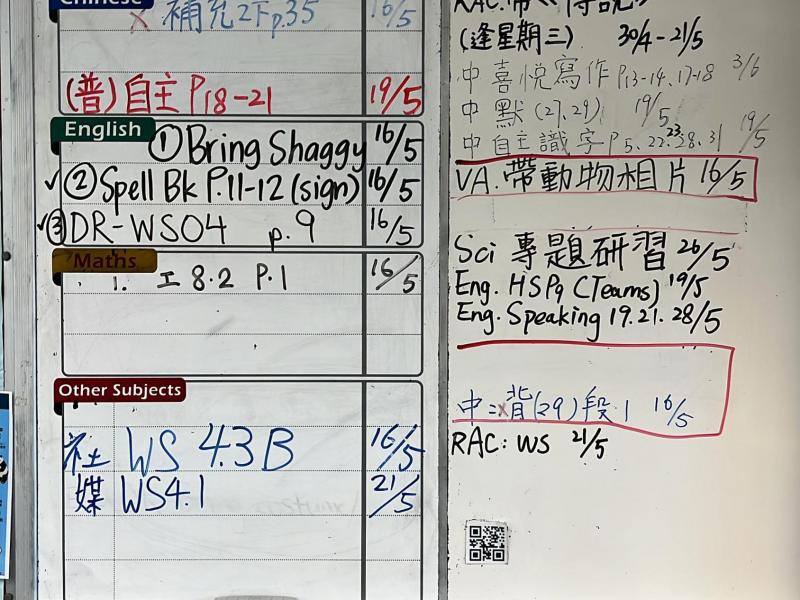 Chinese
x 補充2下p.35 16/5
(普)自主 P18-21 19/5
English
① Bring Shaggy 16/5
✓ ② Spell Bk P.11-12 (sign) 16/5
✓ ③ DR-WS04 p.9 16/5
Maths
1. 工 8.2 P.1 16/5
Other Subjects
社 WS 4.3B 16/5
媒 WS4.1 21/5
RAC.帶
(逢星期三) 30/4-21/5
中 喜悅寫作 P13-14、17-18 3/6
中 默(27、29) 19/5
中 自主識字 P5、22、23、28、31 19/5
VA. 帶動物相片 16/5
Sci 專題研習 26/5
Eng. HSP9 (Teams) 19/5
Eng. Speaking 19.21.28/5
中:x背(29)段1 16/5
RAC: WS 21/5